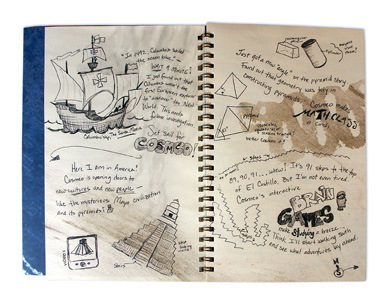 "In 1492, Columbus sailed
the ocean blue,"
WAIT A MINUTE!
I just found out that
Columbus wasn't the
first European explorer
to "discover" the New
World. This needs
further investigation.
Set sail for
COSMEO!
Here I am in America!
Cosmeo is opening doors to
new cultures and new people.
Like the mysterious Maya civilization
and its pyramids!
Stairs
Just got a new "angle" on the pyramid story.
Found out that geometry was key in
constructing pyramids.
Cosmeo makes
MATH CLASS
Stairs
89, 90, 91... whew! It's 91 steps to the top
of El Castillo. But I'm not even tired.
Cosmeo's interactive
BRAIN
GAMES
make studying a breeze.
Think I'll start walking north
and see what adventures lay ahead.
N
S